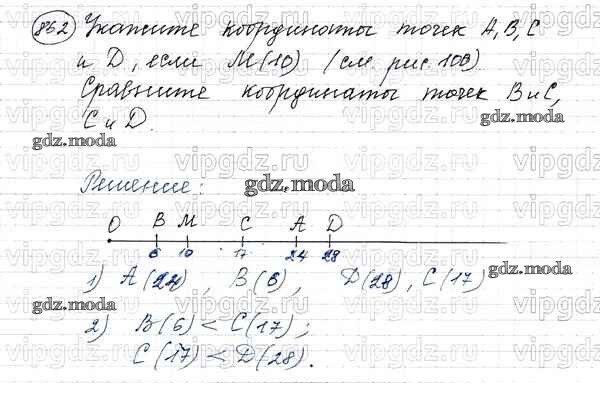 852 Укажите координаты точек A, B, C
и D, если M(10) (см. рис. 100).
Сравните координаты точек B и C,
C и D.
gdz.moda
gdz.moda
Решение:
gdz.moda
O B M C A D
6 10 17 24 28
1) A(24), B(6), D(28), C(17)
gdz.moda
gdz.moda
2) B(6) < C(17);
C(17) < D(28).
vipgdz.ru